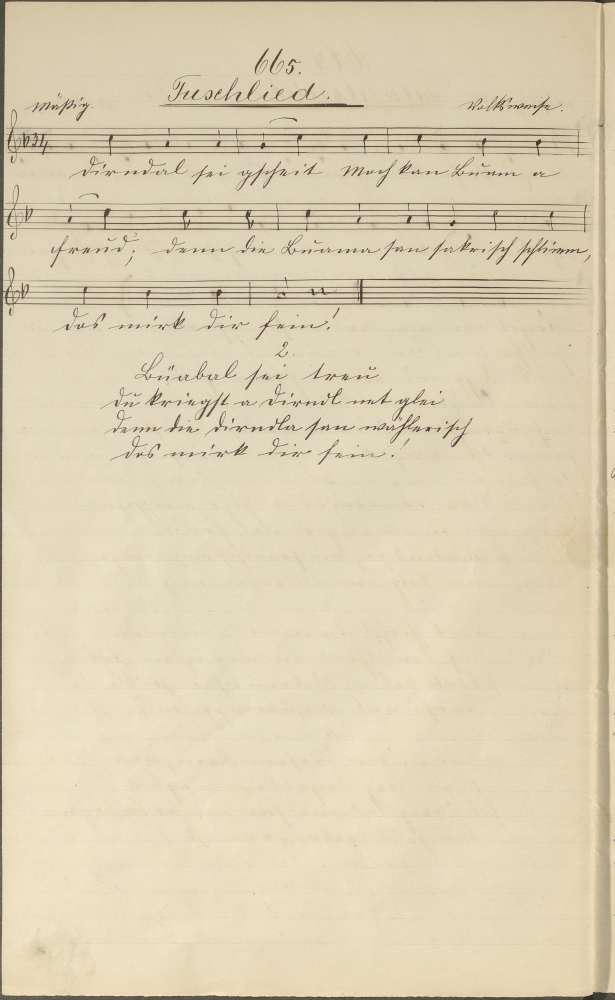 665.
Tuschlied.
Mäßig. Volksweise.
3/4
Dirndal sei gscheit Mach kan Buam a
Freud; denn die Buama san sakrisch schlimm,
das mirk dir fein!
2.
Büabal sei treu
Du kriegst a Dirndl net glei
Denn die Dirndla san wählerisch
das mirk dir fein!